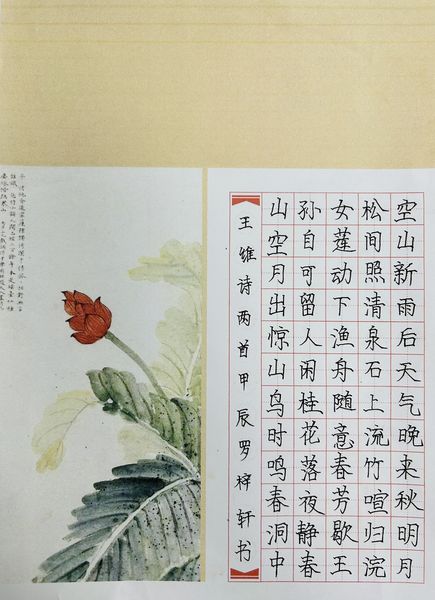 空山新雨后天气晚来秋明月
松间照清泉石上流竹喧归浣
女莲动下渔舟随意春芳歇王
孙自可留人闲桂花落夜静春
山空月出惊山鸟时鸣春洞中
王维诗两首甲辰罗梓轩书